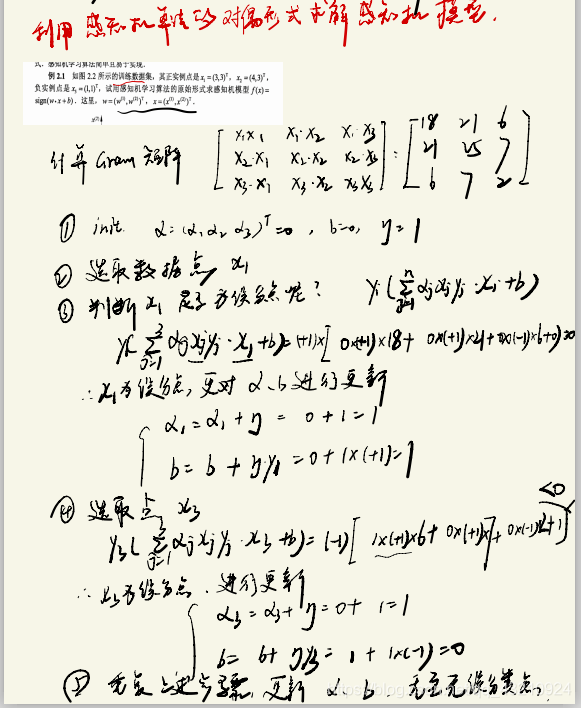 利用感知机算法的对偶形式求解感知机模型.
式. 感知机学习算法简单且易于实现.
例 2.1 如图 2.2 所示的训练数据集，其正实例点是 x₁=(3,3)ᵀ，x₂=(4,3)ᵀ，
负实例点是 x₃=(1,1)ᵀ，试用感知机学习算法的原始形式求感知机模型 f(x)=
sign(w·x+b)．这里，w=(w⁽¹⁾,w⁽²⁾)ᵀ，x=(x⁽¹⁾,x⁽²⁾)ᵀ．
x⁽²⁾
计算Gram矩阵 [x₁x₁ x₁·x₂ x₁·x₃ = [18 21 6
x₂·x₁ x₂·x₂ x₂·x₃ 21 25 7
x₃·x₁ x₃·x₂ x₃x₃] 6 7 2]
① init. α=(α₁ α₂ α₃)ᵀ=0, b=0, η=1
② 选取数据点 x₁
③ 判断 x₁ 是否为误分点呢? yᵢ(Σⱼ₌₁ⁿ αⱼxⱼyⱼ·xᵢ+b)
yᵢ(Σⱼ₌₁³ αⱼxⱼyⱼ·x₁+b)=(+1)×[0×(+1)×18+0×(+1)×21+0×(-1)×6+0)=0
∴x₁为误分点, 更对 α、b 进行更新
α₁=α₁+η = 0+1=1
b=b+η·y₁ =0+1×(+1)=1
④ 选取点 x₃
<0
y₃(Σⱼ₌₁³ αⱼxⱼyⱼ·x₃+b)=(-1)[1×(+1)×6+0×(+1)×7+0×(-1)×2+1)
∴x₃为误分点. 进行更新
α₃=α₃+η=0+1=1
b= b+ηy₃= 1+1×(-1)=0
⑤ 重复上述步骤, 更新 α b